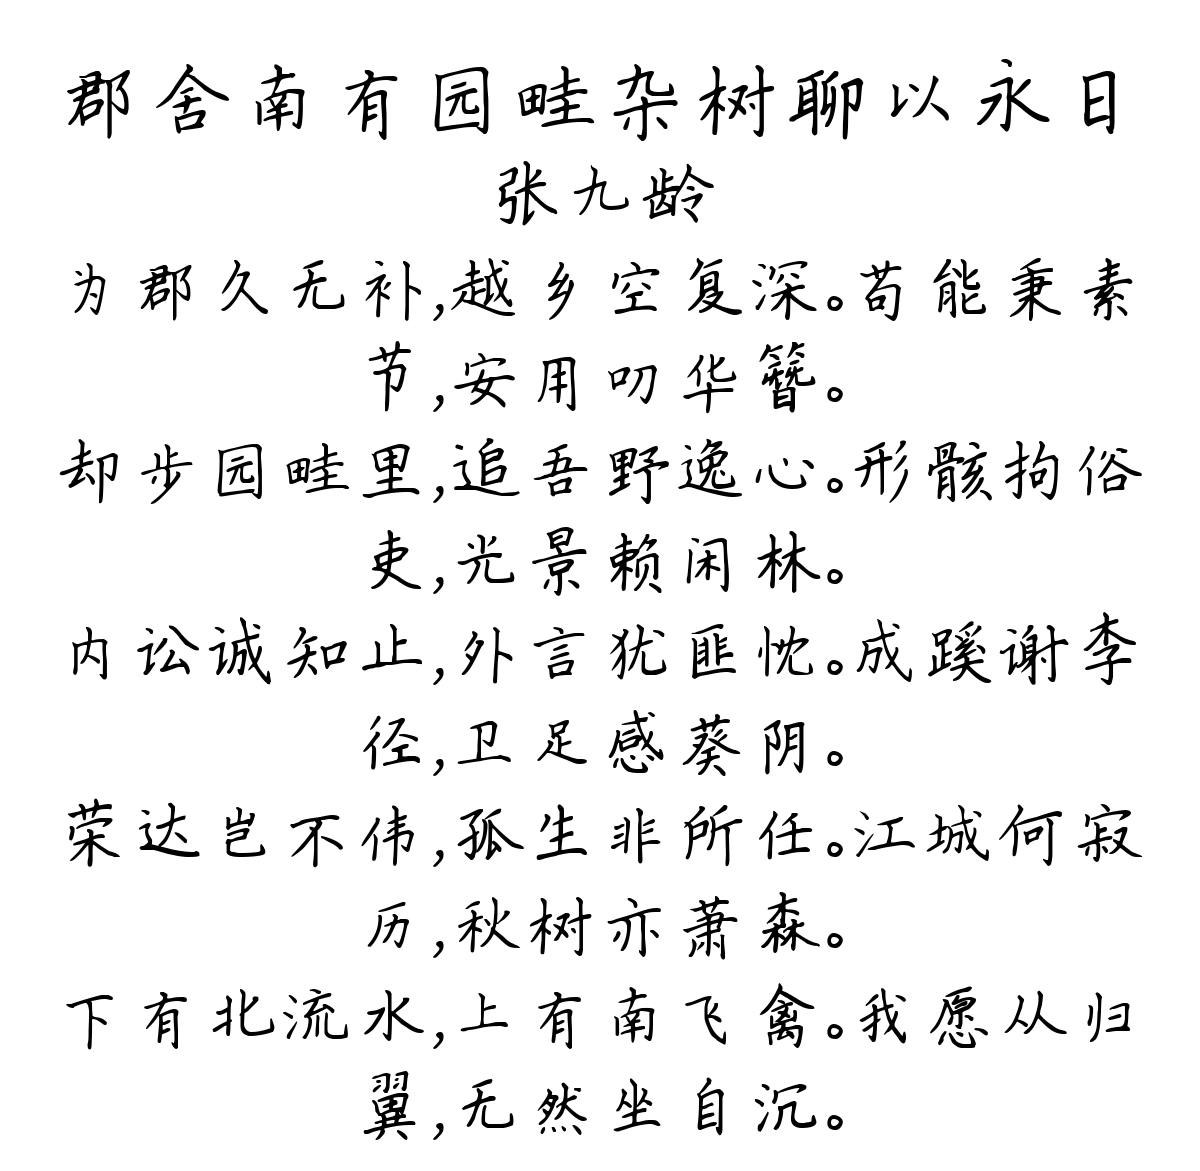 郡舍南有园畦杂树聊以永日
张九龄
为郡久无补,越乡空复深。苟能秉素
节,安用叨华簪。
却步园畦里,追吾野逸心。形骸拘俗
吏,光景赖闲林。
内讼诚知止,外言犹匪忱。成蹊谢李
径,卫足感葵阴。
荣达岂不伟,孤生非所任。江城何寂
历,秋树亦萧森。
下有北流水,上有南飞禽。我愿从归
翼,无然坐自沉。